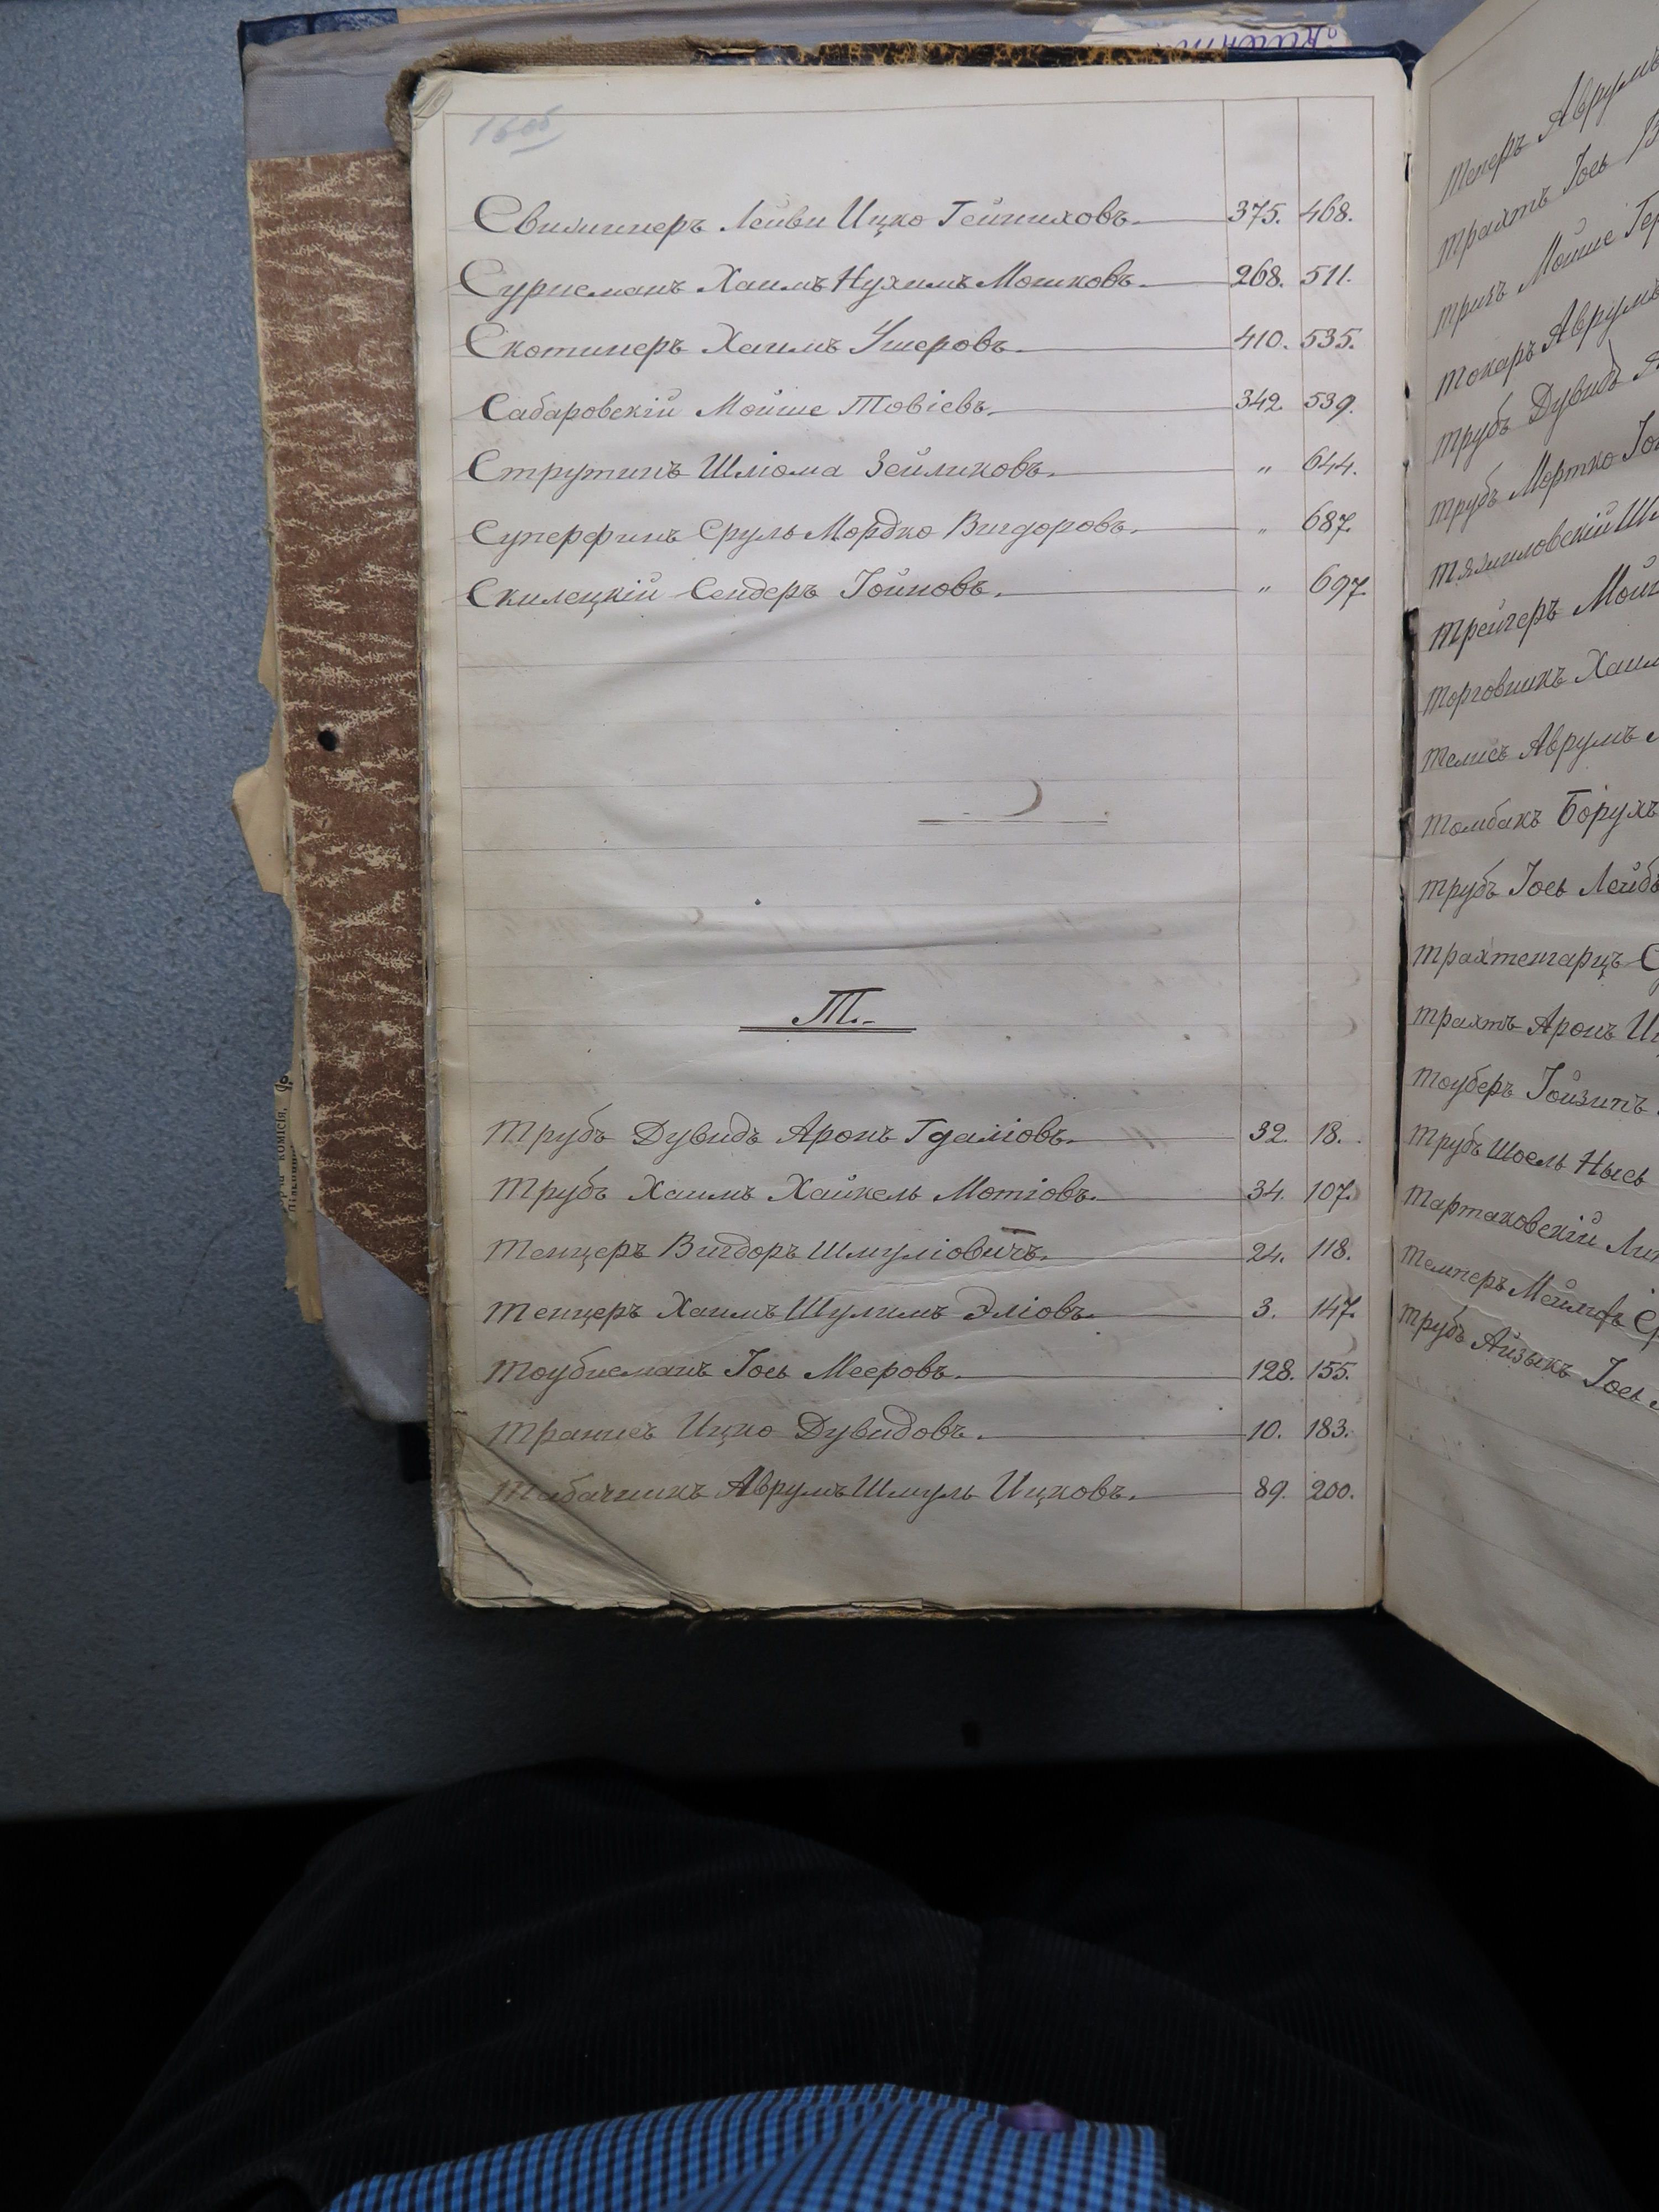 Свилинеръ Лейви Ицко Гейниховъ. 375. 468.
Сурисманъ Хаимъ Нухимъ Мошковъ. 268. 511.
Скотинеръ Хаимъ Ушеровъ. 410. 535.
Сабаровскій Мойше Товіевъ. 342. 539.
Струтинъ Шліома Зейликовъ. " 644.
Суперфинъ Сруль Мордко Вигдоровъ. " 687.
Скилецкій Сендеръ Іойновъ. " 697.
Т.
Трубъ Дувидъ Аронъ Гдаліовъ. 32. 18.
Трубъ Хаимъ Хайкель Мотіовъ. 34. 107.
Тенцеръ Вигдоръ Шмуліовичъ. 24. 118.
Тенцеръ Хаимъ Шулимъ Эліовъ. 3. 147.
Тоубисманъ Іось Мееровъ. 128. 155.
Транисъ Ицко Дувидовъ. 10. 183.
Табачникъ Аврумъ Шмуль Ицковъ. 89. 200.
Теперъ Аврумъ
Трахтъ Іось
Трикъ Мойше
Токаръ Аврумъ
Трубъ Дувидъ
Трубъ Мортко
Тяжиловскій
Трейгеръ
Торговникъ
Телисъ Аврумъ
Томбакъ Борухъ
Трубъ Іось Лейбъ
Трахтенгарцъ
Трахтъ Аронъ
Тоуберъ Іойзипъ
Трубъ Шоель Нысь
Тартаковскій
Темперъ
Трубъ Айзыкъ Іось